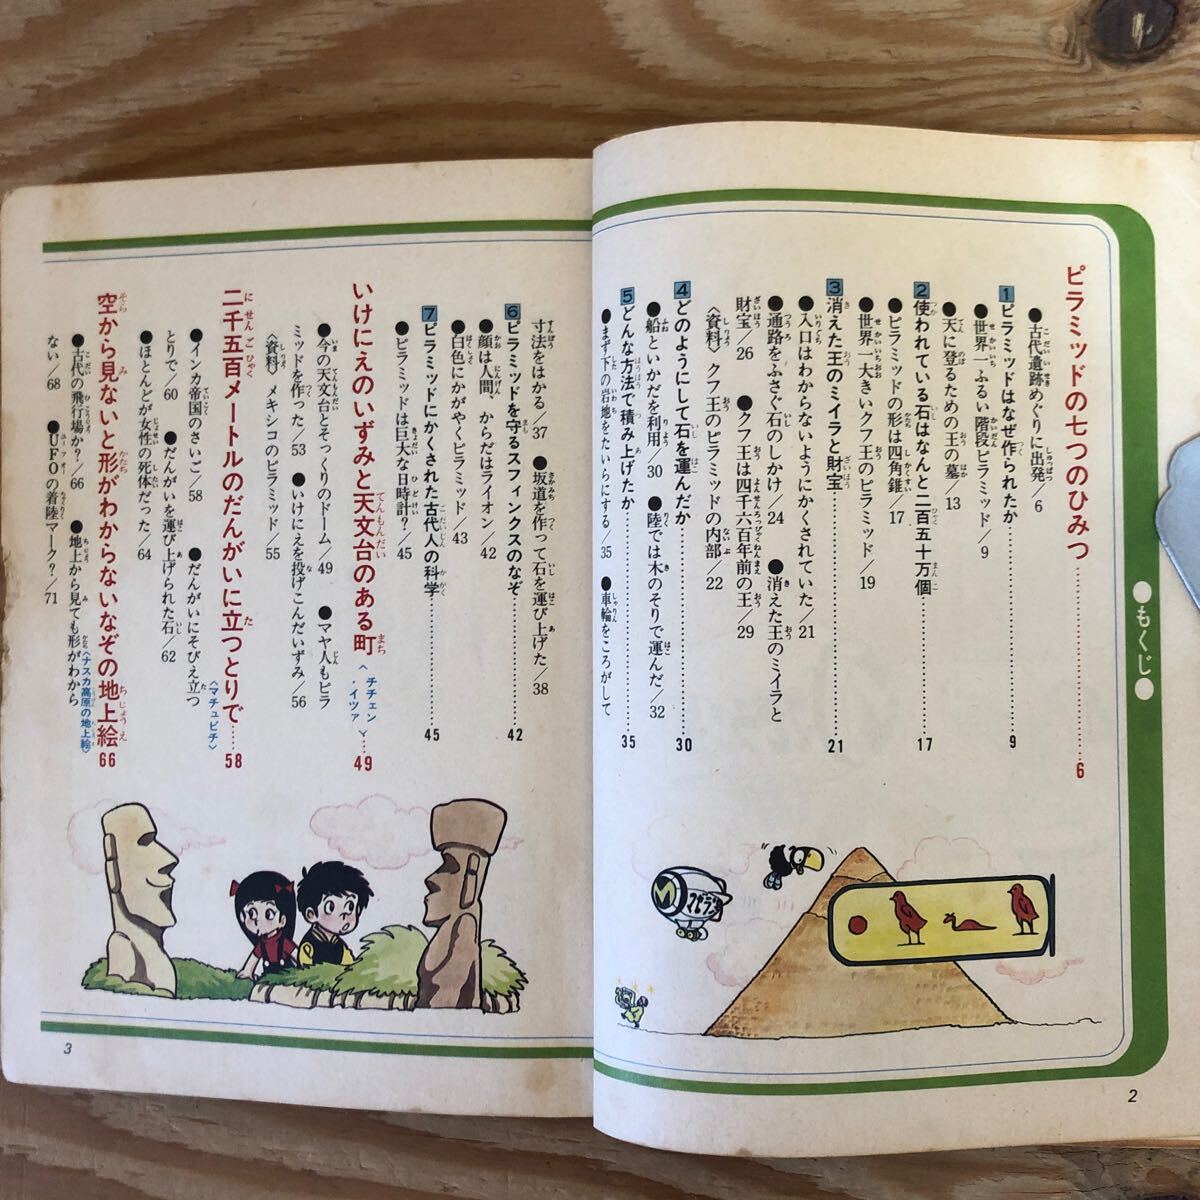 ●もくじ●
ピラミッドの七つのひみつ……6
●古代遺跡めぐりに出発/6
1 ピラミッドはなぜ作られたか……9
●世界一ふるい階段ピラミッド/9
●天に登るための王の墓/13
2 使われている石はなんと二百五十万個……17
●ピラミッドの形は四角錐/17
●世界一大きいクフ王のピラミッド/19
3 消えた王のミイラと財宝……21
●入口はわからないようにかくされていた/21
●通路をふさぐ石のしかけ/24 ●消えた王のミイラと
財宝/26 ●クフ王は四千六百年前の王/29
〈資料〉クフ王のピラミッドの内部/22
4 どのようにして石を運んだか……30
●船といかだを利用/30 ●陸では木のそりで運んだ/32
5 どんな方法で積み上げたか……35
●まず下の岩地をたいらにする/35 ●車輪をころがして
マセラン
M
2
寸法をはかる/37 ●坂道を作って石を運び上げた/38
6 ピラミッドを守るスフィンクスのなぞ……42
●顔は人間、からだはライオン/42
●白色にかがやくピラミッド/43
7 ピラミッドにかくされた古代人の科学……45
●ピラミッドは巨大な日時計?/45
いけにえのいずみと天文台のある町〈チチェン・イツァ〉……49
●今の天文台とそっくりのドーム/49 ●マヤ人もピラ
ミッドを作った/53 ●いけにえを投げこんだいずみ/56
〈資料〉メキシコのピラミッド/55
二千五百メートルのだんがいに立つとりで……58
〈マチュピチ〉
●インカ帝国のさいご/58 ●だんがいにそびえ立つ
とりで/60 ●だんがいを運び上げられた石/62
●ほとんどが女性の死体だった/64
空から見ないと形がわからないなぞの地上絵 66
〈ナスカ高原の地上絵〉
●古代の飛行場か?/66 ●地上から見ても形がわから
ない/68 ●UFOの着陸マーク?/71
3